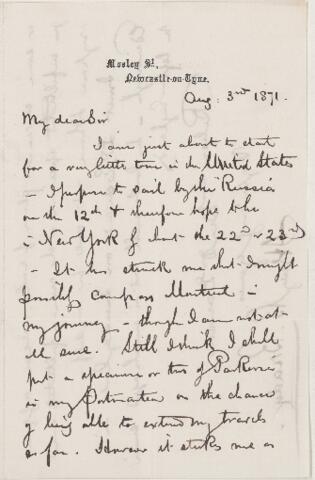 Mosley St,
Newcastle-on-Tyne.
Aug: 3rd 1871.
My dear Sir
I am just about to start
for a very little tour in the United States
- I propose to sail by the Russia
on the 12th & therefore hope to be
in New York abt the 22d or 23d
- It has struck me that I might
possibly compass Montreal in
my journey - though I am not at
all sure. Still I think I shall
put a specimen or two of Parkeria
in my Portmanteau on the chance
of being able to extend my travels
so far. However it strikes me as